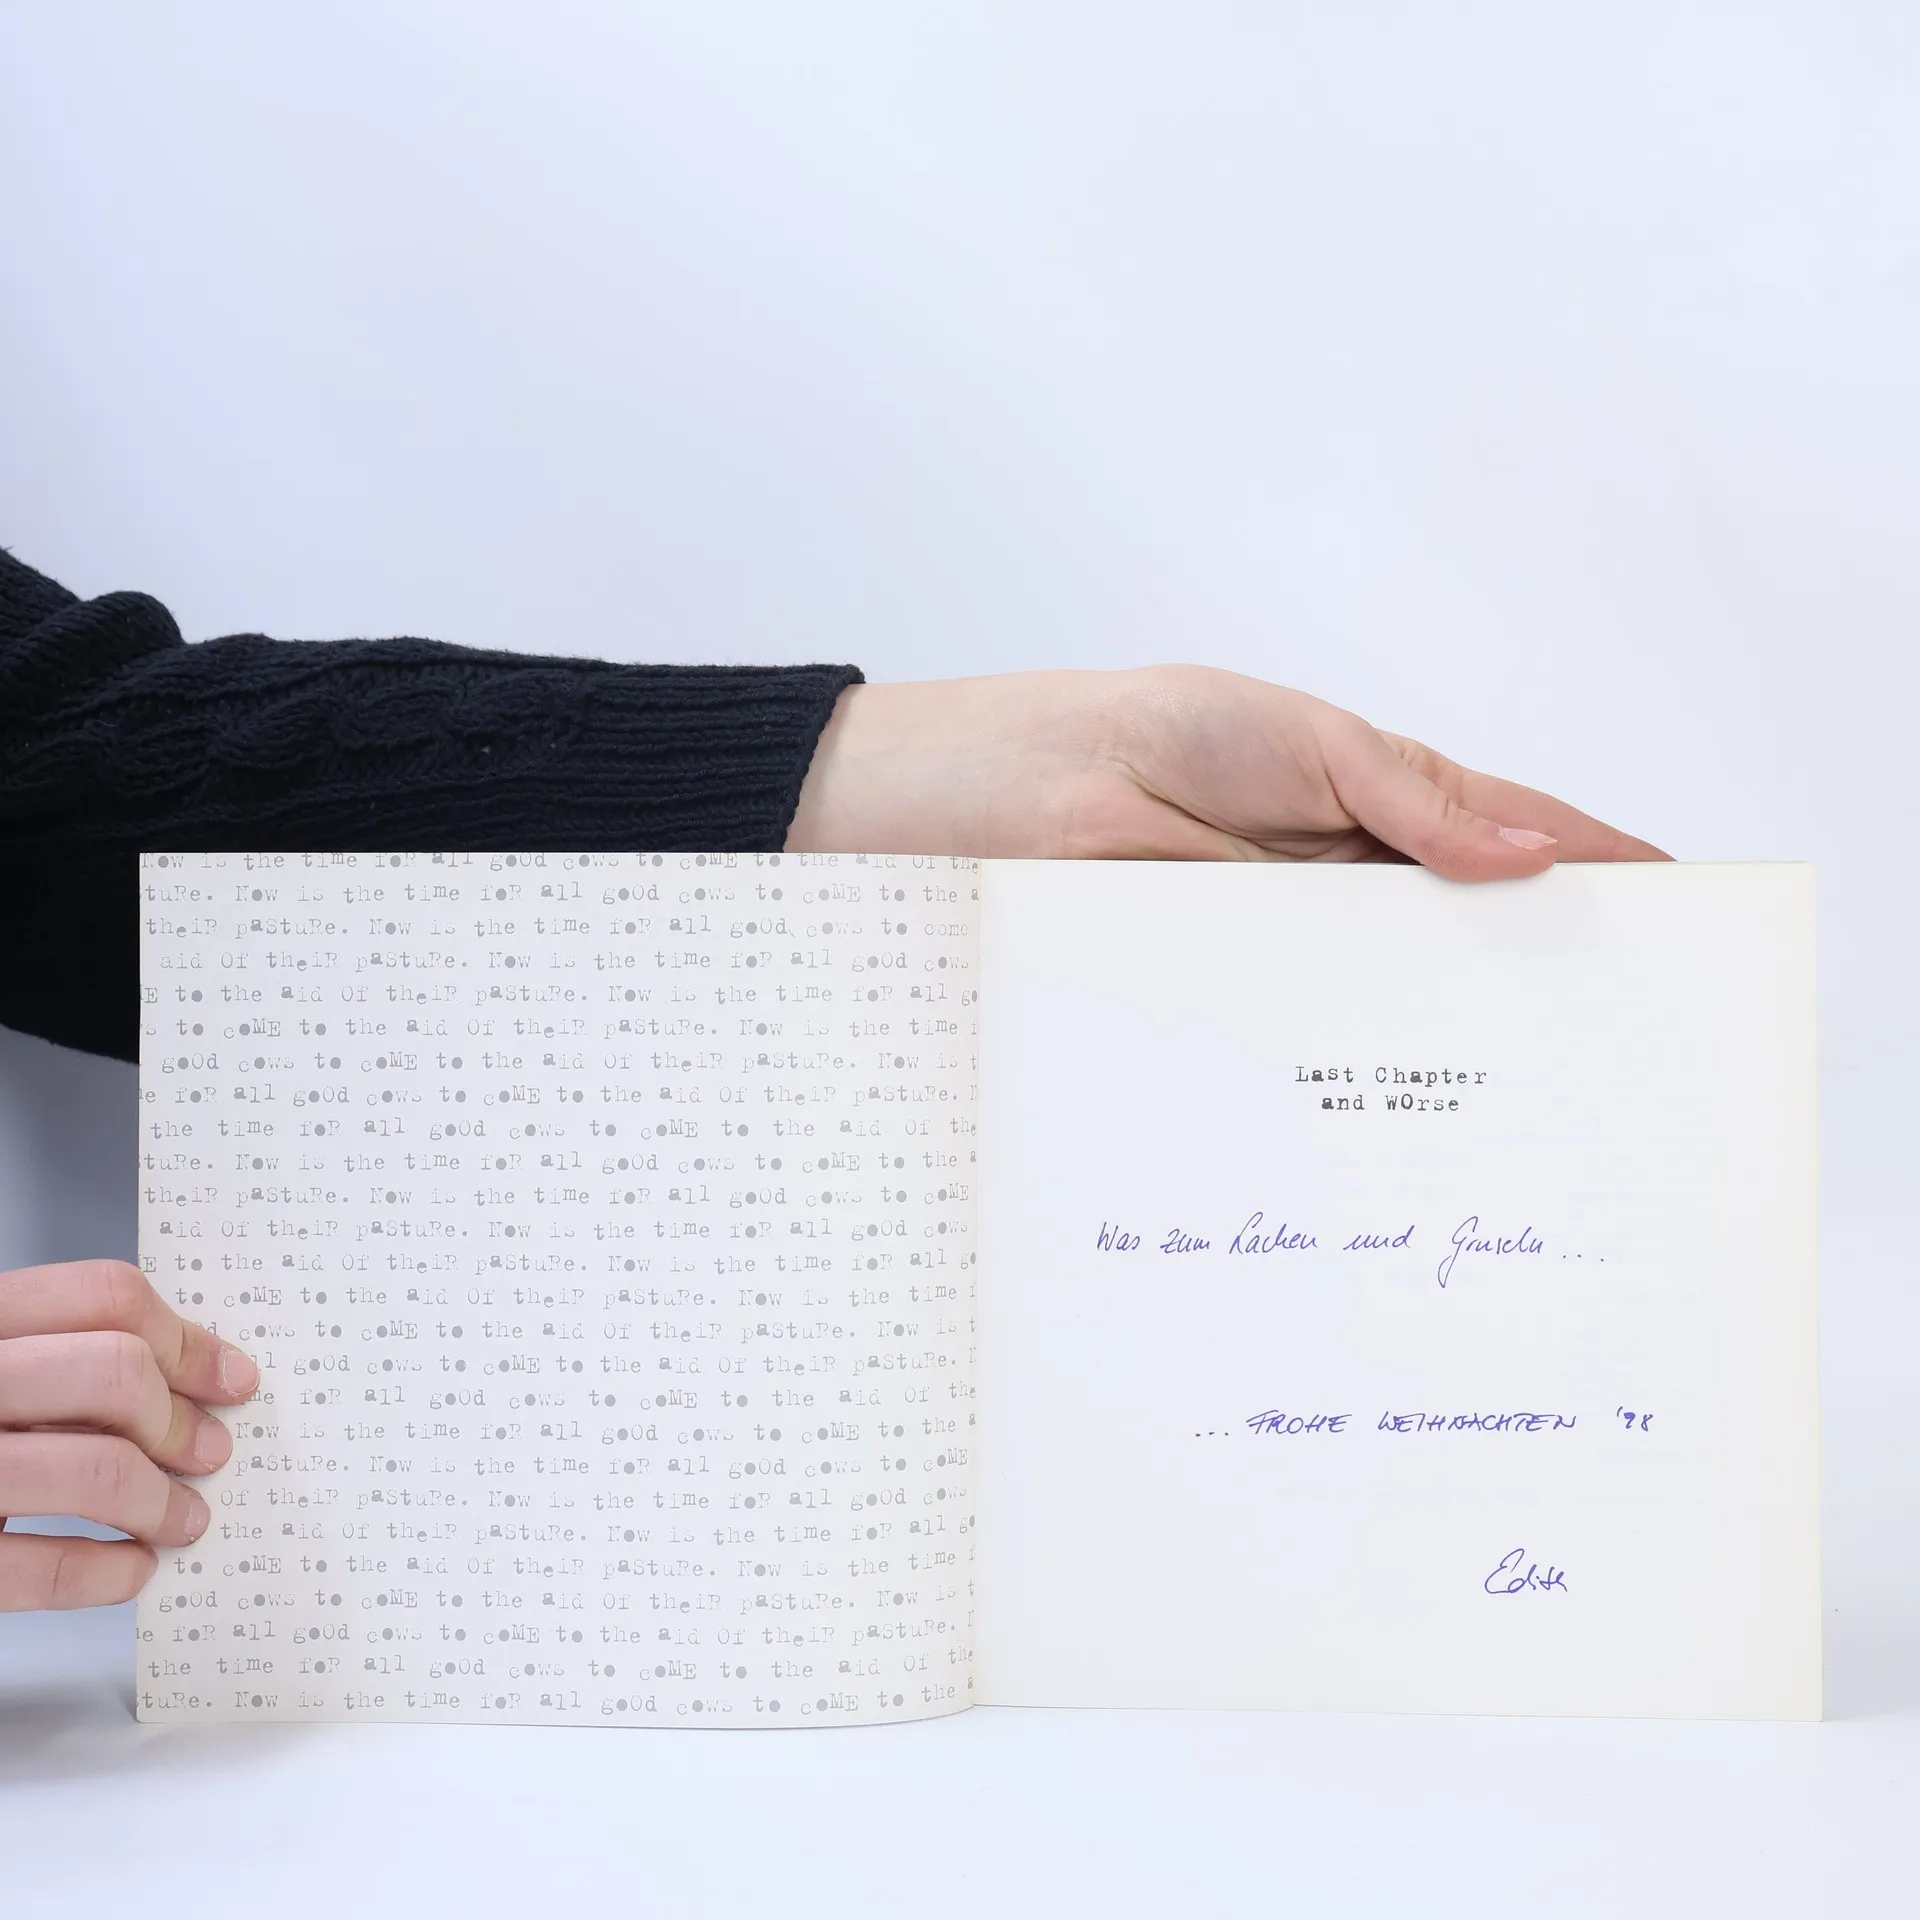 Now is the time foR all goOd cows to coME to the aid Of the
tuRe. Now is the time foR all goOd cows to coME to the a
theiR paStuRe. Now is the time foR all goOd cows to come
aid Of theiR paStuRe. Now is the time foR all goOd cows
E to the aid Of theiR paStuRe. Now is the time foR all go
s to coME to the aid Of theiR paStuRe. Now is the time f
goOd cows to coME to the aid Of theiR paStuRe. Now is t
e foR all goOd cows to coME to the aid Of theiR paStuRe. N
the time foR all goOd cows to coME to the aid Of the
tuRe. Now is the time foR all goOd cows to coME to the a
theiR paStuRe. Now is the time foR all goOd cows to coME
aid Of theiR paStuRe. Now is the time foR all goOd cows
E to the aid Of theiR paStuRe. Now is the time foR all go
to coME to the aid Of theiR paStuRe. Now is the time f
d cows to coME to the aid Of theiR paStuRe. Now is t
ll goOd cows to coME to the aid Of theiR paStuRe. N
me foR all goOd cows to coME to the aid Of the
Now is the time foR all goOd cows to coME to the a
paStuRe. Now is the time foR all goOd cows to coME
Of theiR paStuRe. Now is the time foR all goOd cows
the aid Of theiR paStuRe. Now is the time foR all go
to coME to the aid Of theiR paStuRe. Now is the time f
goOd cows to coME to the aid Of theiR paStuRe. Now is t
e foR all goOd cows to coME to the aid Of theiR paStuRe. N
the time foR all goOd cows to coME to the aid Of the
tuRe. Now is the time foR all goOd cows to coME to the a
Last Chapter
and WOrse
Was zum Lachen und Gruseln ...
... FROHE WEIHNACHTEN '98
Edith